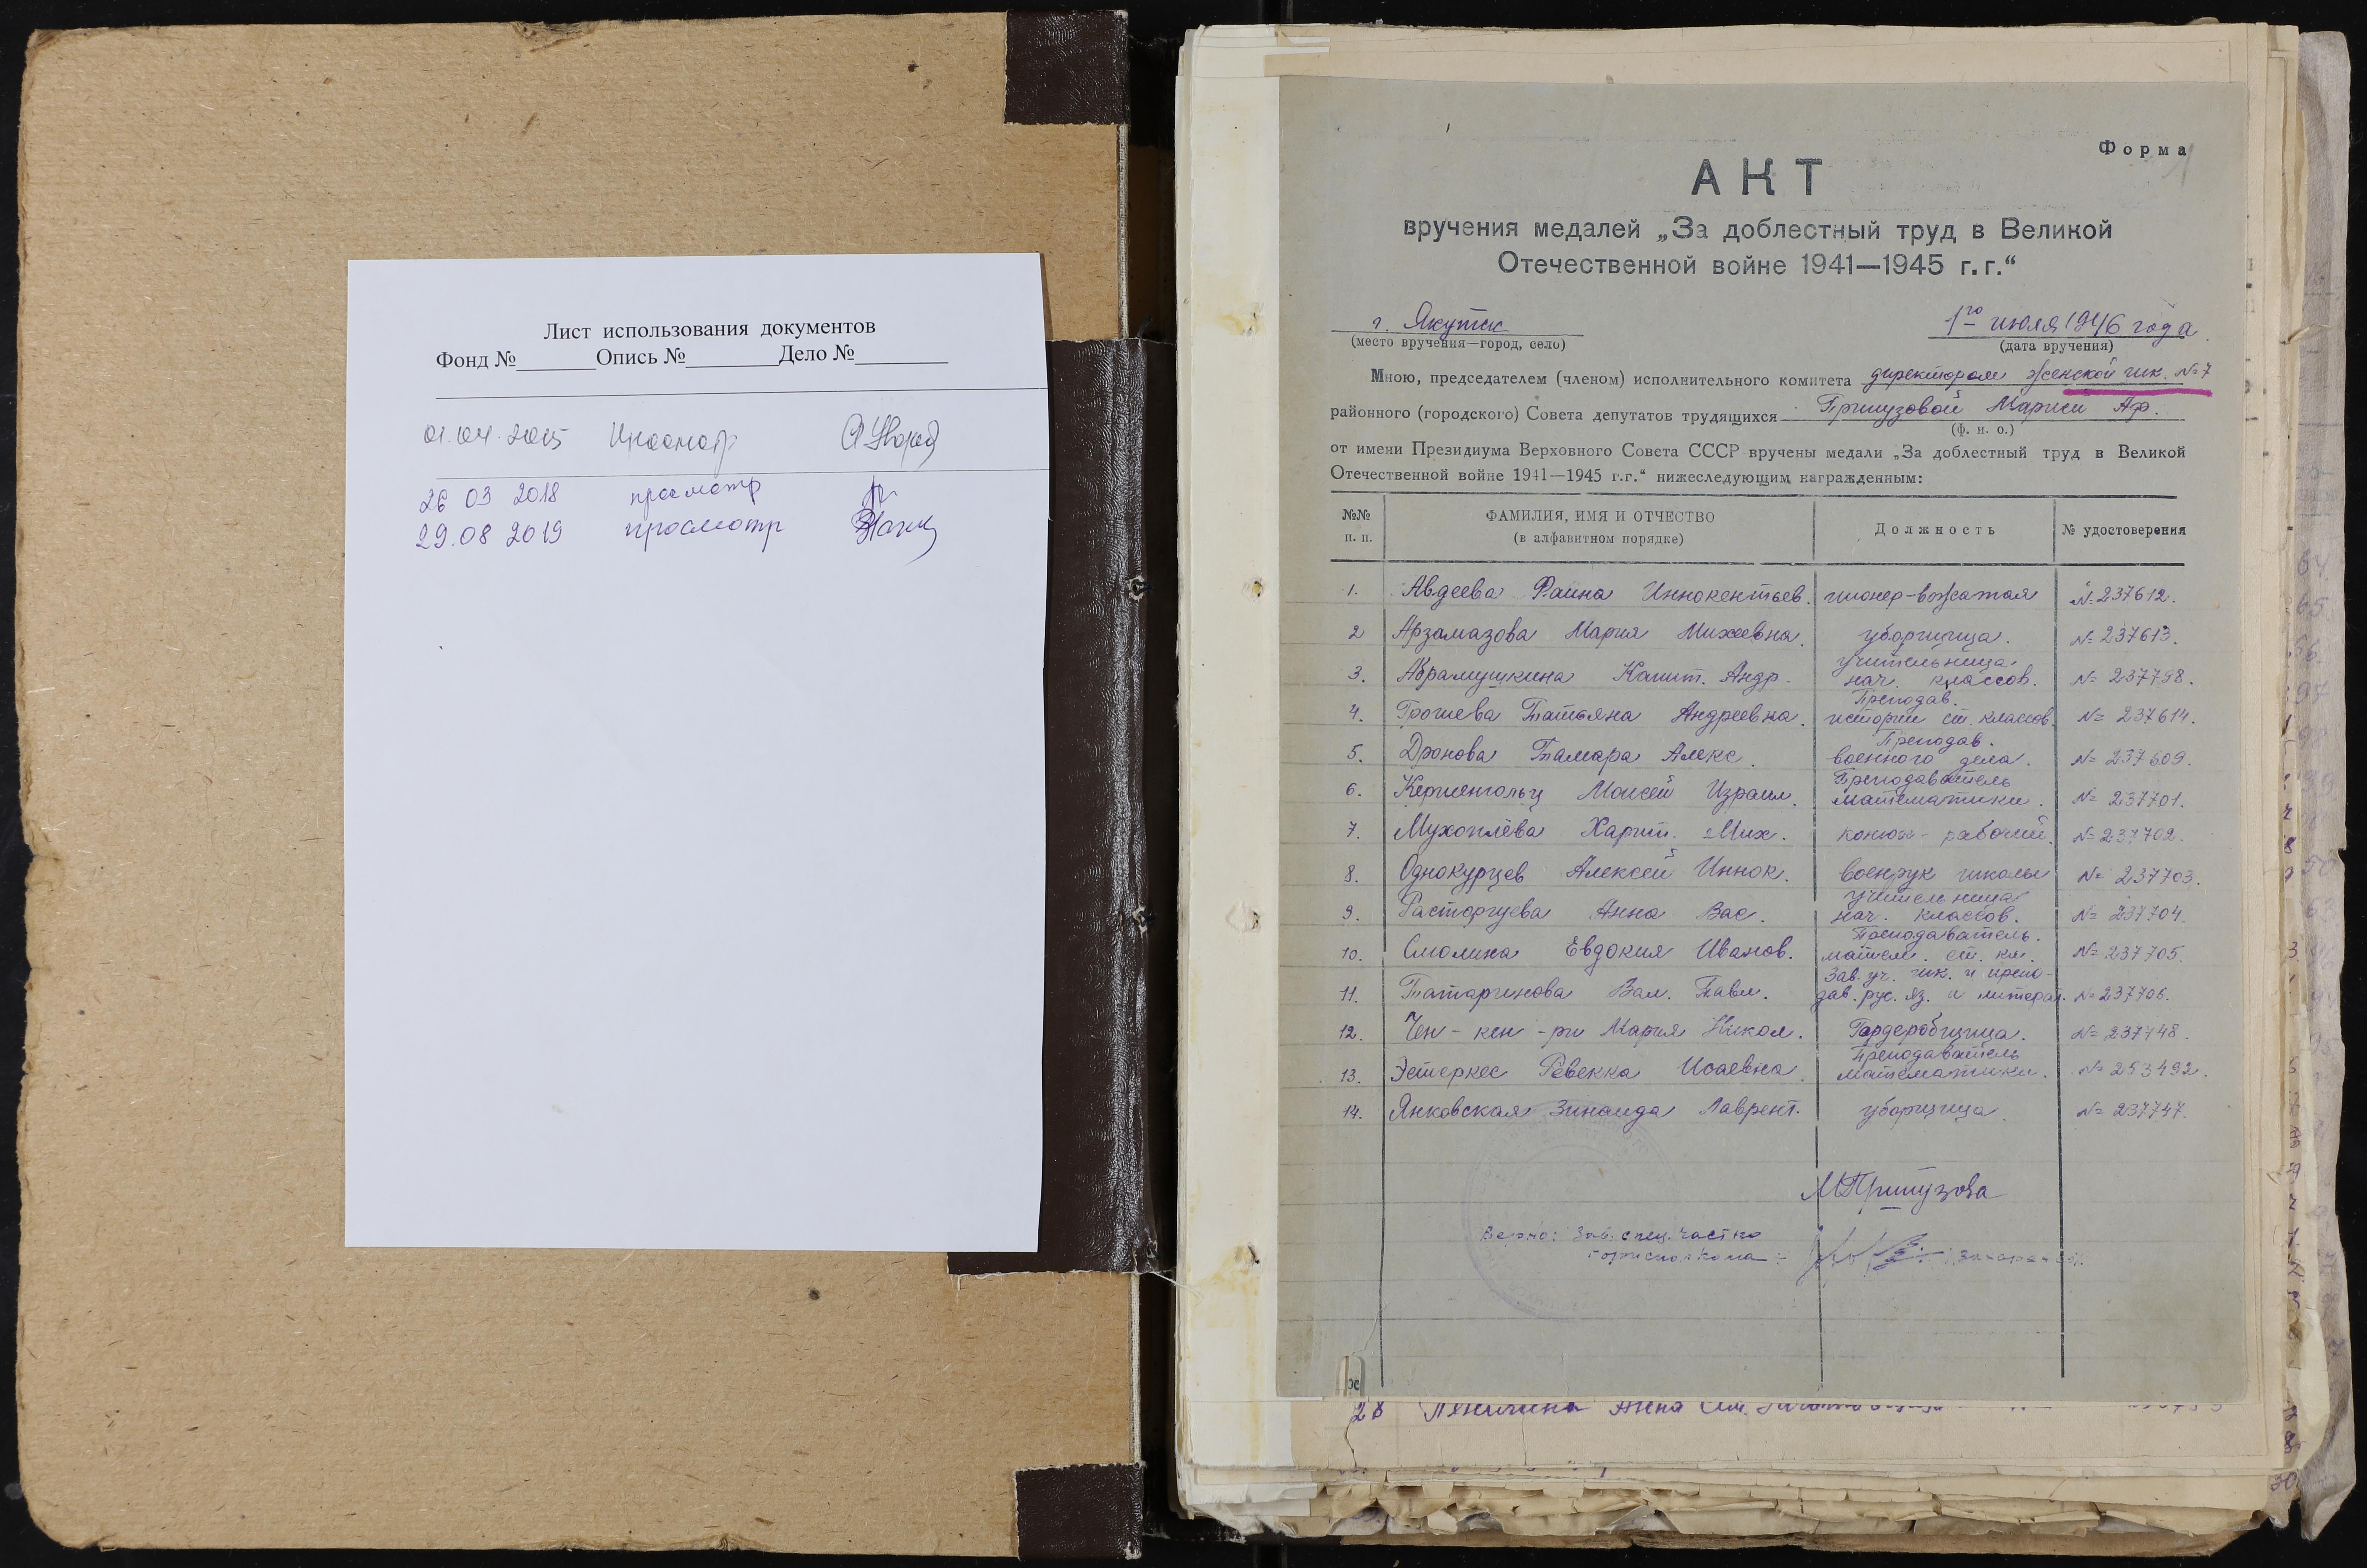 Лист использования документов
Фонд №________Опись №_________Дело №_________
01.04.2015 Просмотр
26 03 2018 просмотр
29.08 2019 просмотр
Форма
АКТ
вручения медалей „За доблестный труд в Великой
Отечественной войне 1941—1945 г.г.“
г. Якутск 1го июля 1946 года
(место вручения—город, село) (дата вручения)
Мною, председателем (членом) исполнительного комитета директором женской шк. №7
районного (городского) Совета депутатов трудящихся Припузовой Марией Аф.
(ф. и. о.)
от имени Президиума Верховного Совета СССР вручены медали „За доблестный труд в Великой
Отечественной войне 1941—1945 г.г.“ нижеследующим награжденным:
№№ п. п. ФАМИЛИЯ, ИМЯ И ОТЧЕСТВО (в алфавитном порядке) Должность № удостоверения
1. Авдеева Фаина Иннокентьев. пионер-вожатая № 237612.
2 Арзамазова Мария Михеевна. уборщица. № 237613.
3. Абрамушкина Капит. Андр. учительница нач. классов. № 237798.
4. Грошева Татьяна Андреевна. Преподав. истории ст. классов. № 237614.
5. Дронова Тамара Алекс. Преподав. военного дела. № 237609.
6. Кершенгольц Моисей Израил. Преподаватель математики. № 237701.
7. Мухоплёва Харит. Мих. конюх-рабочий. № 237702.
8. Однокурцев Алексей Иннок. военрук школы № 237703.
9. Расторгуева Анна Вас. учительница нач. классов. № 237704.
10. Смолина Евдокия Иванов. Преподаватель. матем. ст. кл. № 237705.
11. Татаринова Вал. Павл. Зав. уч. шк. и препо-дав. рус. яз. и литерат. № 237706.
12. Чен-кен-ри Мария Никол. Гардеробщица. № 237748.
13. Эстеркес Ревекка Исаевна. Преподаватель математики. № 253492.
14. Янковская Зинаида Лаврент. уборщица. № 237747.
МПрипузова
Верно: Зав. спец. частью
горисполкома:
28 Анна Сем.